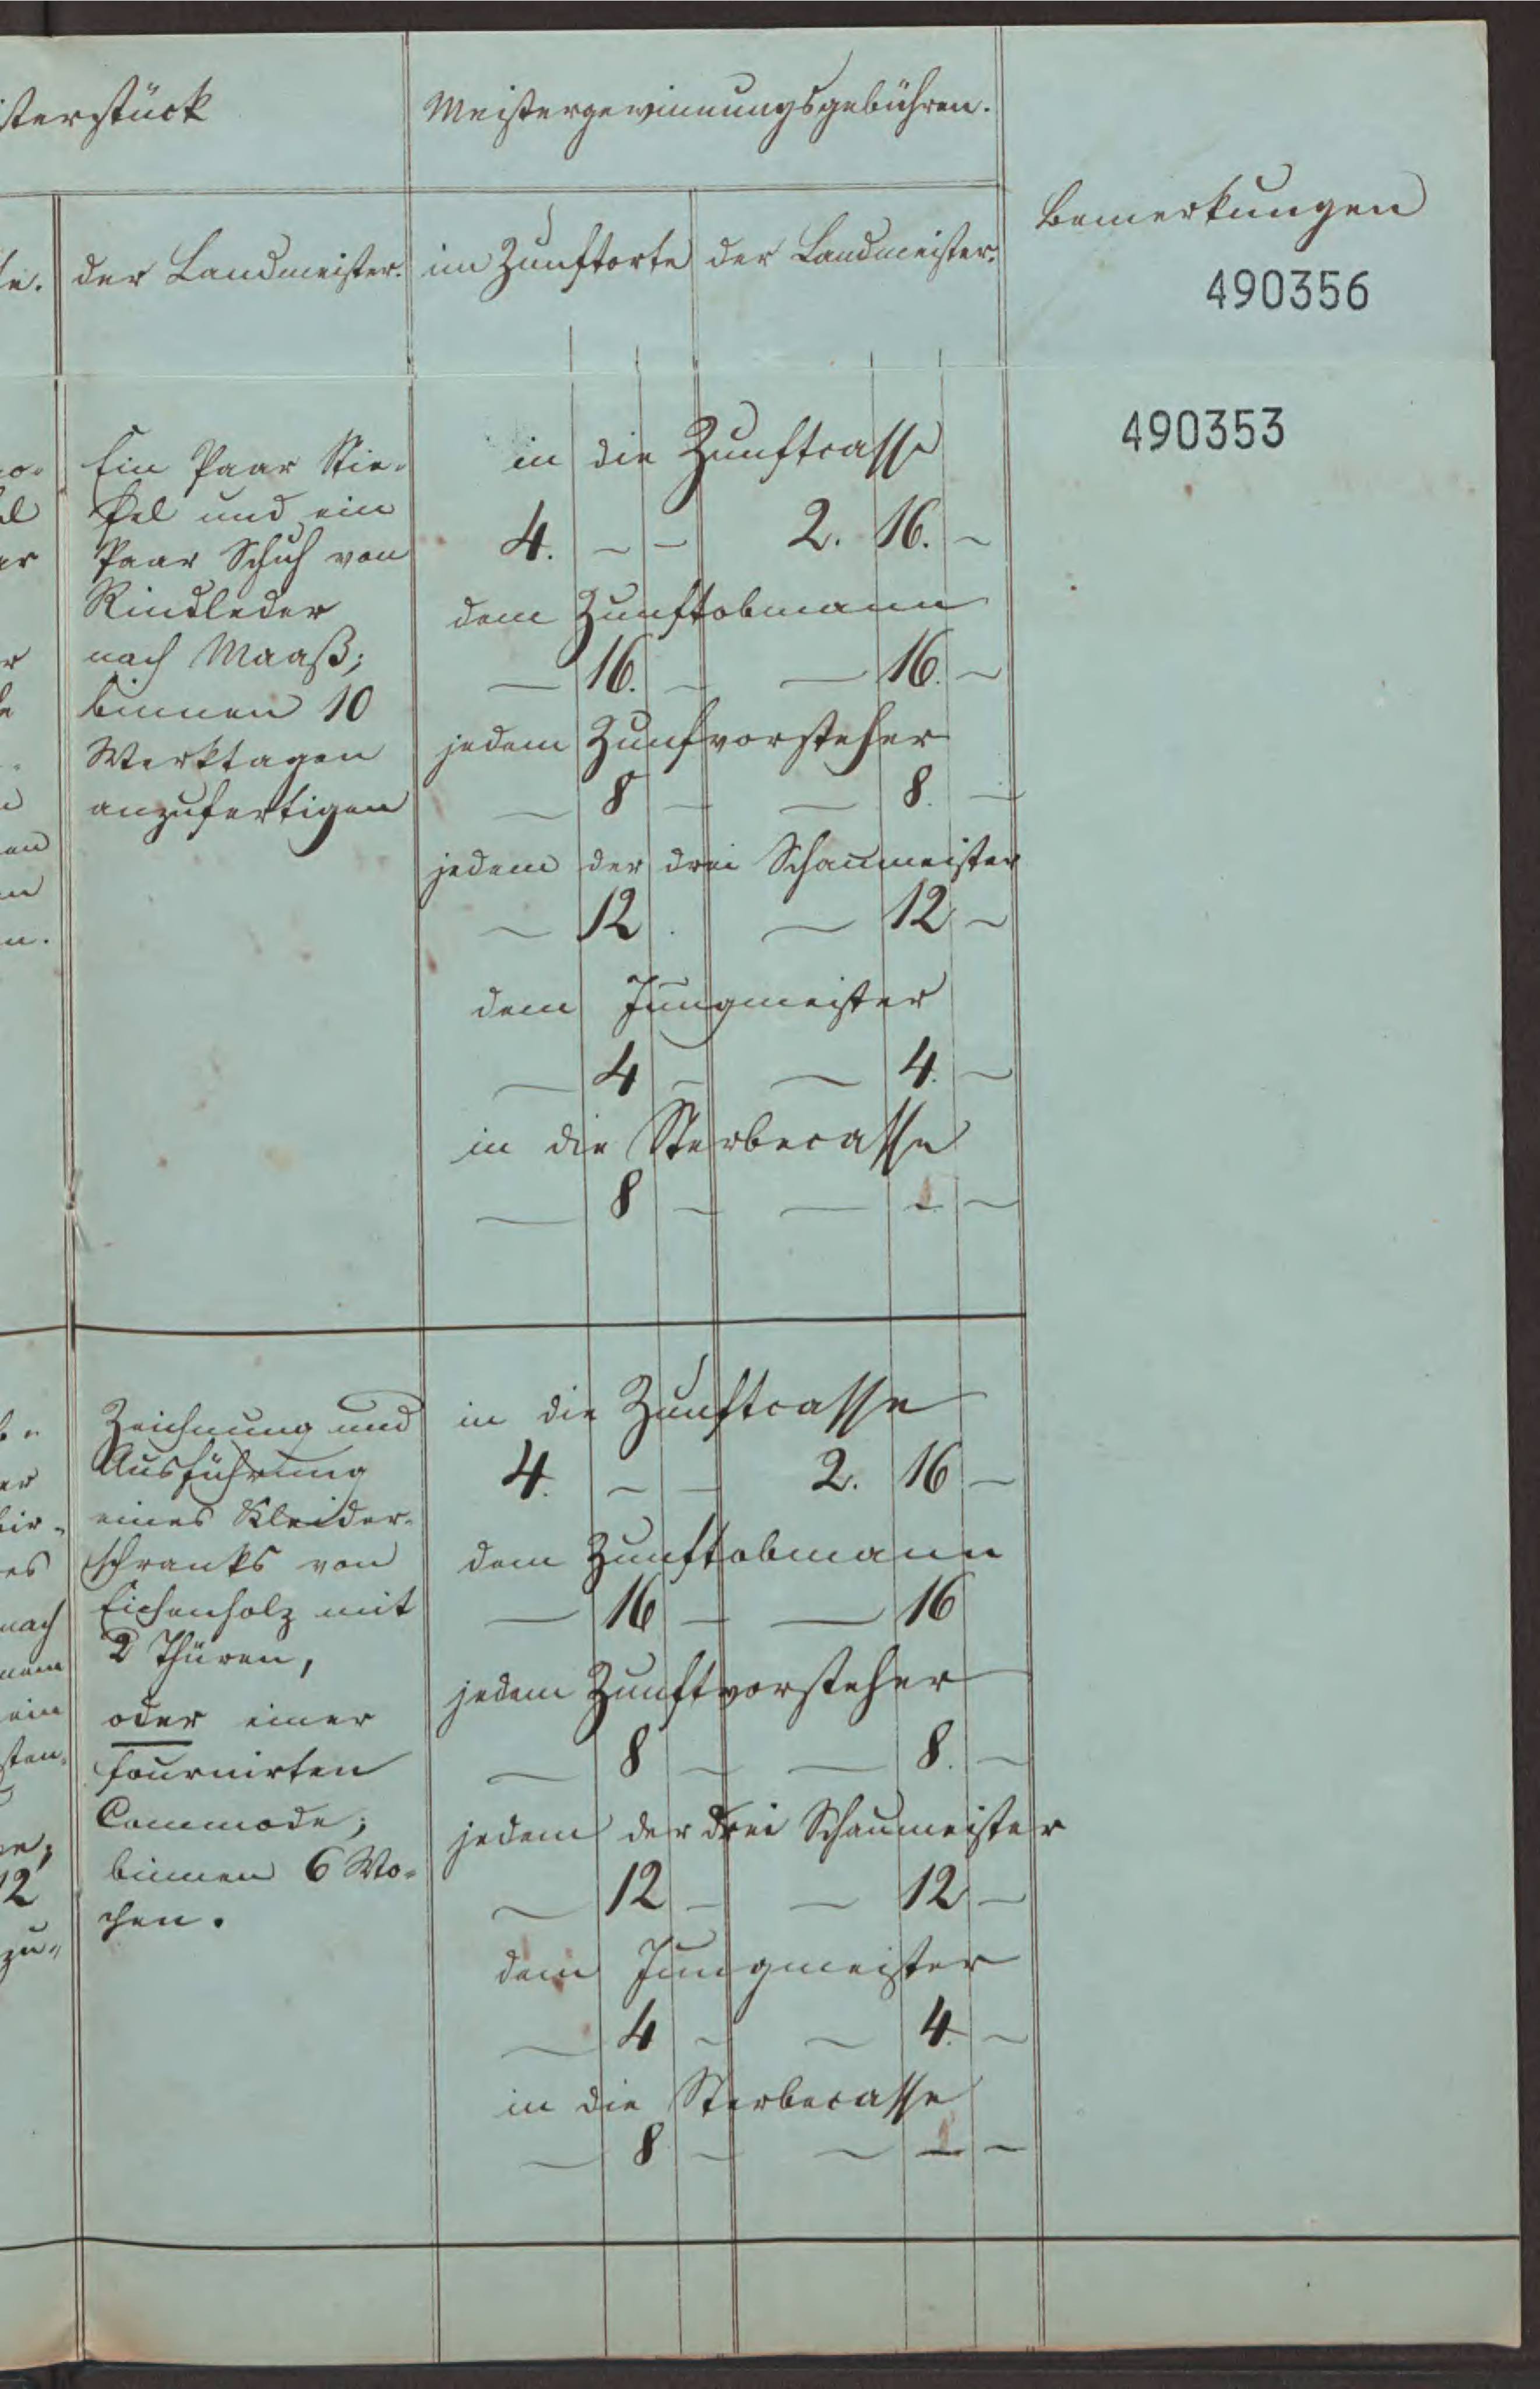 sterstück
Meistergewinnungsgebühren.
Bemerkungen
der Landmeister.
im Zunftorte
der Landmeister.
490356
490353
Ein Paar Stie-
fel und ein
Paar Schuh von
Rindleder
nach Maaß;
binnen 10
Werktagen
anzufertigen
in die Zunftcasse
4. – – 2. 16. –
dem Zunftobmann
– 16. – – 16. –
jedem Zunfvorsteher
– 8 – – 8. –
jedem der drei Schaumeister
– 12 . – 12 –
dem Jungmeister
– 4 – – 4. –
in die Sterbecasse
– 8 – – – –
nach
ein
12
zu-
Zeichnung und
Ausführung
eines Kleider-
schranks von
Eichenholz mit
2 Thüren,
oder einer
fournirten
Commode;
binnen 6 Wo-
chen.
in die Zunftcasse
4. – – 2. 16 –
dem Zunftobmann
– 16 – – 16
jedem Zunftvorsteher
– 8 – – 8. –
jedem der drei Schaumeister
– 12 – – 12 –
dem Jungmeister
– 4 – – 4. –
in die Sterbecasse
– 8 – – – –